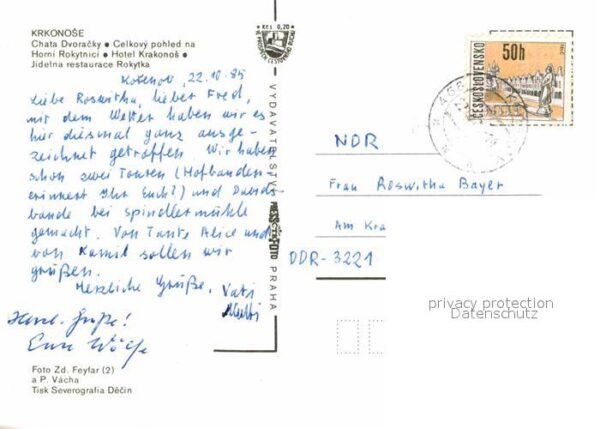 KRKONOŠE
Chata Dvoračky • Celkový pohled na
Horní Rokytnici • Hotel Krakonoš •
Jídelna restaurace Rokytka
Kořenov, 22.10.85
Liebe Roswitha, lieber Fred,
mit dem Wetter haben wir es
hier diesmal ganz ausge-
zeichnet getroffen. Wir haben
schon zwei Touren (Hofbauden-
erinnert Ihr Euch?) und Davids-
baude bei Spindlermühle
gemacht. Von Tante Alice und
von Kamil sollen wir
grüßen.
Herzliche Grüße, Vati
Mutti
Herzl. Grüße!
Kčs 0,20
VYDAVATELSTVÍ PRESSFOTO PRAHA
50h
ČESKOSLOVENSKO
NDR
Frau Roswitha Bayer
Am Kra
DDR-3221
privacy protection
Datenschutz
Foto Zd. Feyfar (2)
a P. Vácha
Tisk Severografia Děčín